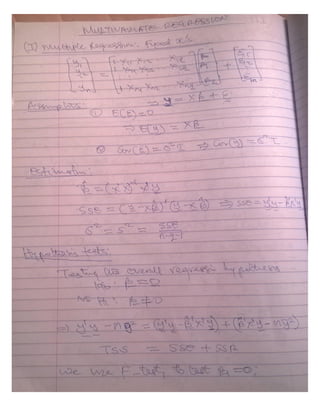 MULTIVARIATE REGRESSION
(I) Multiple Regression: Fixed x's
[y1 y2 ⋮ yn] = [1 x11 x12 x1q 1 x21 x22 x2q 1 xn1 xn2 xnq] [β0 β1 ⋮ βq] + [ε1 ε2 ⋮ εn]
⇒ y = Xβ + ε
Assumptions: ① E(ε)=0
⇒ E(y) = Xβ
② Cov(ε)=σ²I ⇒ Cov(y)=σ²I
Estimation:
β̂ = (X'X)⁻¹X'y
SSE = (y - Xβ̂)'(y - Xβ̂) ⇒ SSE = y'y - β̂'X'y
σ̂² = s² = SSE/n-q-1
Hypothesis tests:
Testing the overall regression hypothesis
H0: β1=0
vs H1: β1≠0
⇒ y'y - nȳ² = (y'y - β̂'X'y) + (β̂'X'y - nȳ²)
TSS = SSE + SSR
We use F-test, to test β1=0;